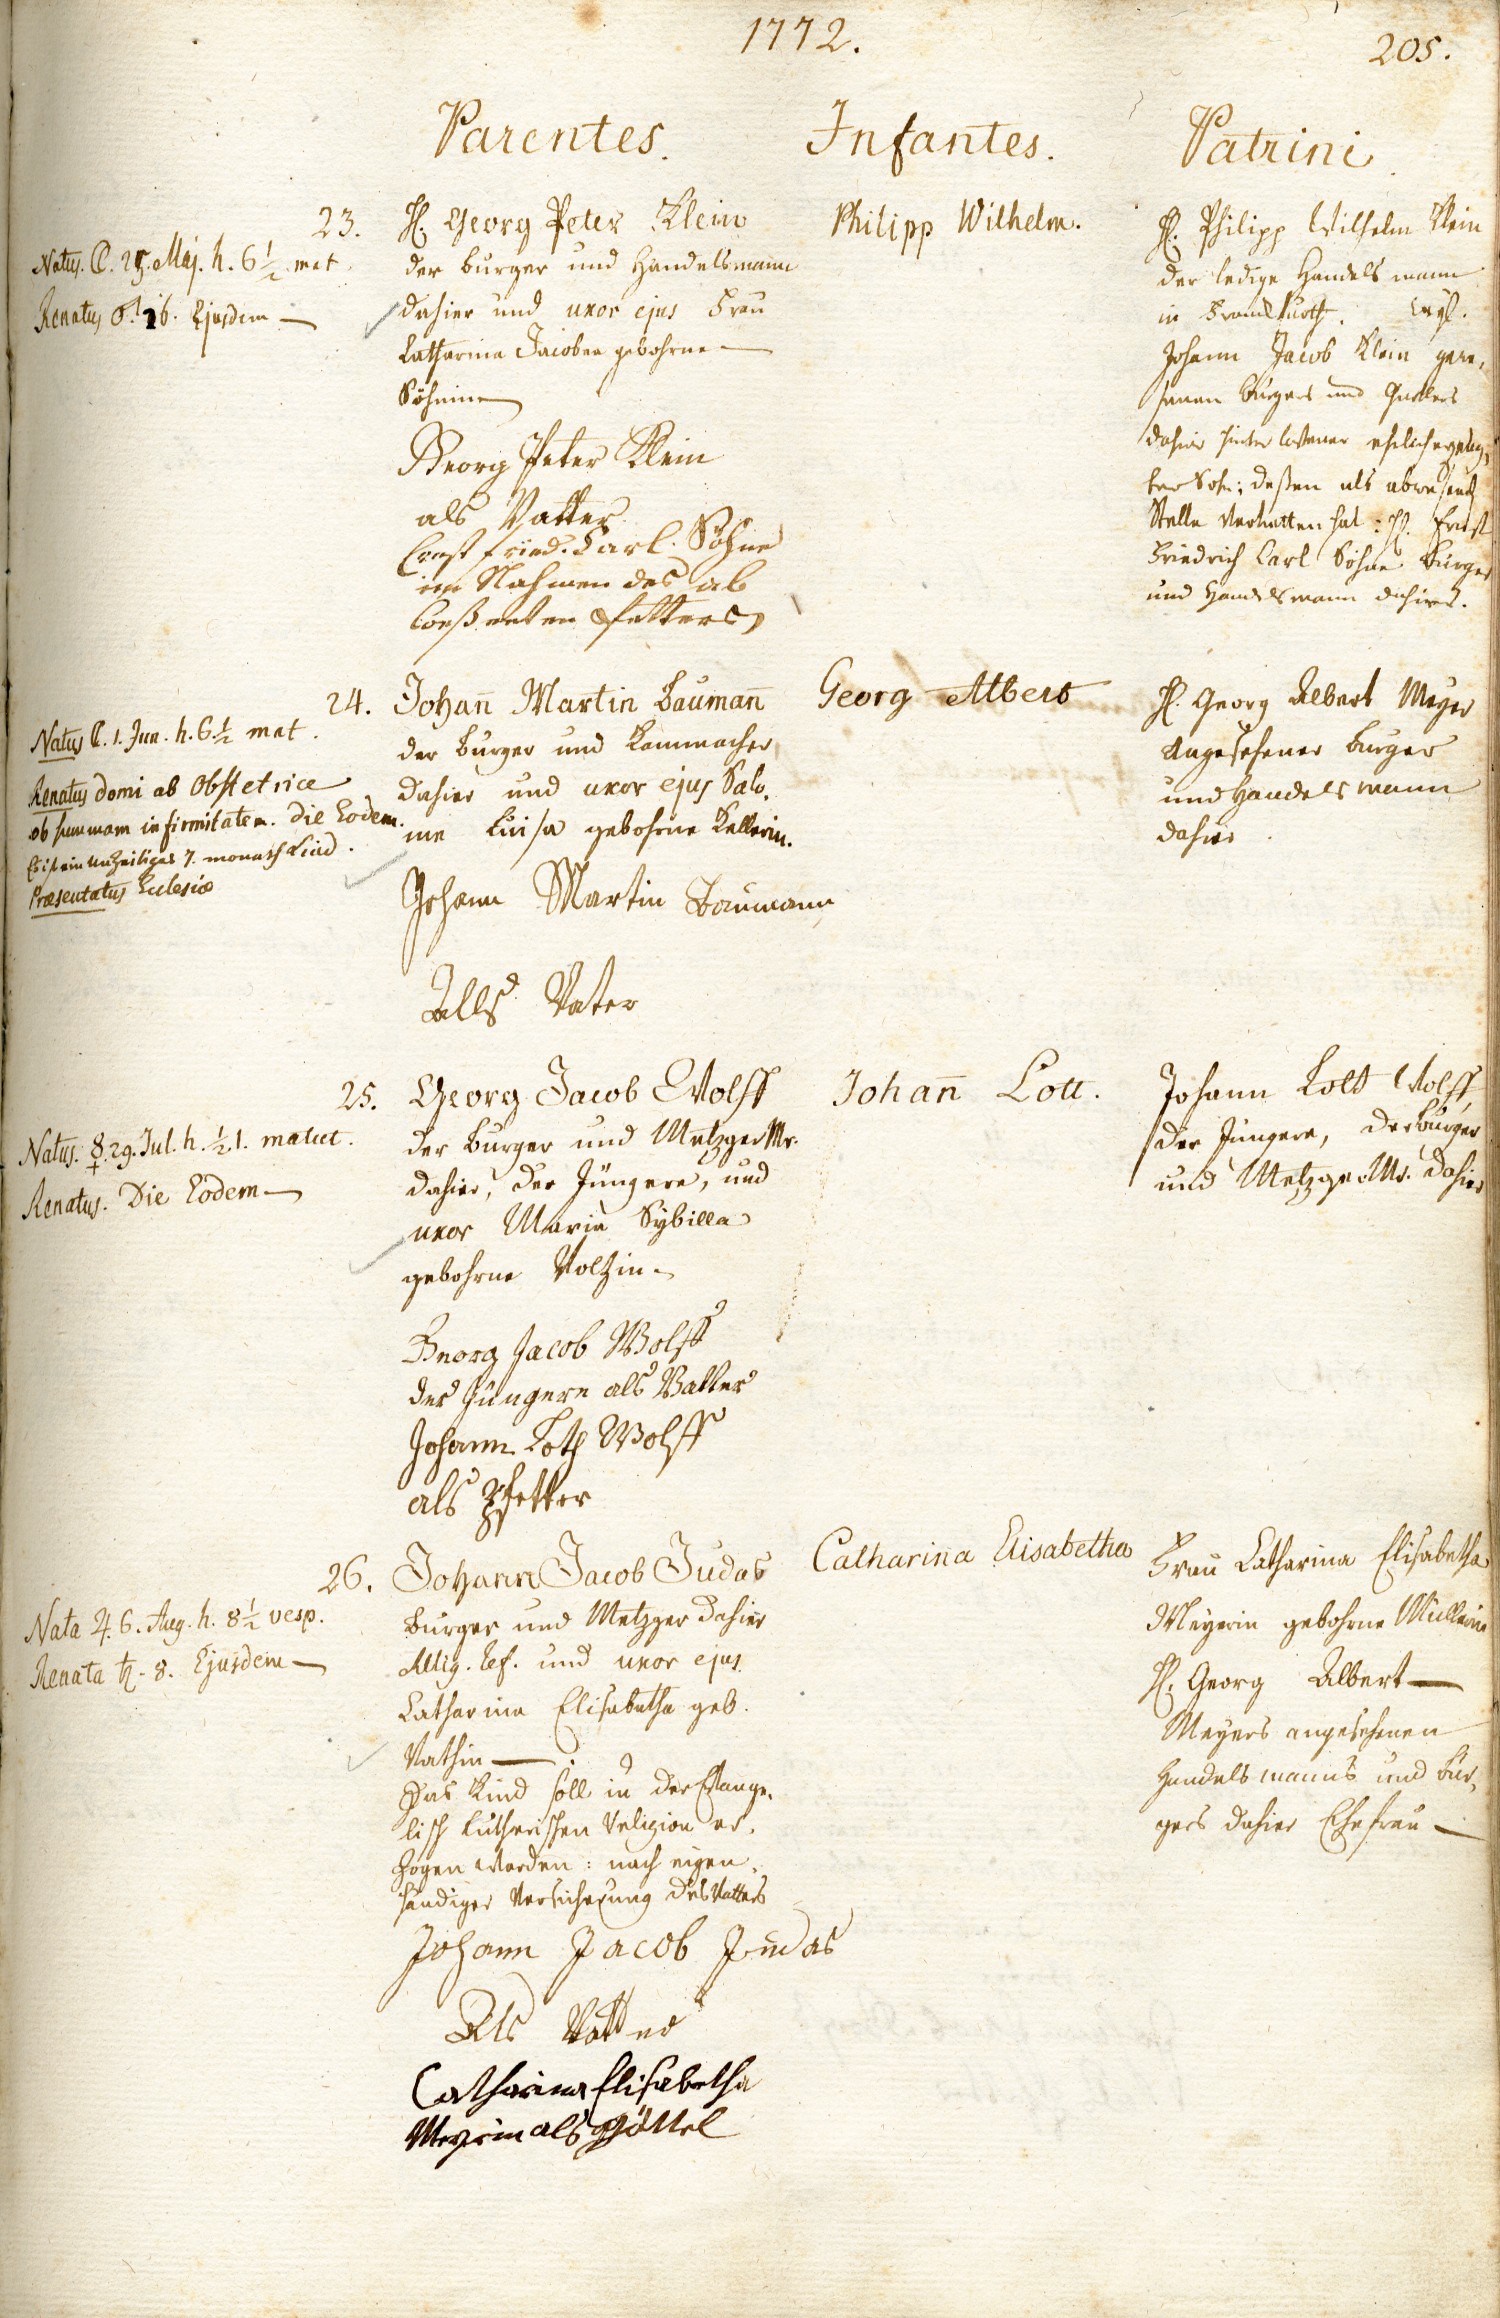 1772.
205.
Parentes.
Infantes.
Patrini
23.
Natus. C. 25. Maj. h. 6 1/2 mat.
Renatus ♂. 26. Ejusdem —
H. Georg Peter Klein
der burger und Handelsmann
dahier und uxor ejus Frau
Catharina Jacobea gebohrne —
Söhnin
Georg Peter Klein
als Vatter
Ernst Fried. Carl. Söhne
im Nahmen des ab
weßenten Petters
Philipp Wilhelm.
H. Philipp Wilhelm Klein
der ledige Handelsmann
in Franckfurth. weyl.
Johann Jacob Klein gewe,
senen burgers und
dahier hinterlassener ehelich erzeug,
ter Sohn; deßen als abwesend
Stelle vertretten hat: H. Ernst
Friedrich Carl Söhne burger
und Handelsmann dahier.
24.
Natus C. 1. Jun. h. 6 1/2 mat.
Renatus domi ab Obstetrice
ob summam infirmitatem. Die Eodem.
Es ist ein unzeitiges 7. monath Kind.
Præsentatus Eclesiæ
Johañ Martin Baumañ
der burger und Kammacher
dahier und uxor ejus Salo,
me Luisa gebohrne Kellerin.
Johann Martin Baumann
Alls Vater
Georg Albert
H. Georg Albert Meyer
Angesehener burger
und Handelsmann
dahier.
25.
Natus. ☿. 29. Jul. h. 1/2 1. matut.
Renatus. Die Eodem —
Georg Jacob Wolff
der burger und Metzger Mr.
dahier, der Jüngere, und
uxor Maria Sybilla
gebohrne Voltzin.
Georg Jacob Wolff
der Jüngere als Vatter
Johann Loth Wolff
als Pfetter
Johañ Lott.
Johann Lott Wolff
der Jüngere, der burger
und Metzger Mr. dahier
26.
Nata ♃. 6. Aug. h. 8 1/2 vesp.
Renata ♄. 8. Ejusdem —
Johann Jacob Judas
burger und Metzger dahier
Relig. Ref. und uxor ejus
Catharina Elisabetha geb.
Rathin —
Das Kind soll in der Evange,
lisch Lutherischen Religion er,
zogen werden: nach eigen,
händiger Versicherung des Vatters
Johann Jacob Judas
Als Vatter
Catharina Elisabetha
Meyerin als Göttel
Catharina Elisabetha
Frau Catharina Elisabetha
Meyerin gebohrne Müllerin
H. Georg Albert —
Meyers angesehenen
Handelsmanns und bur,
gers dahier Ehefrau —